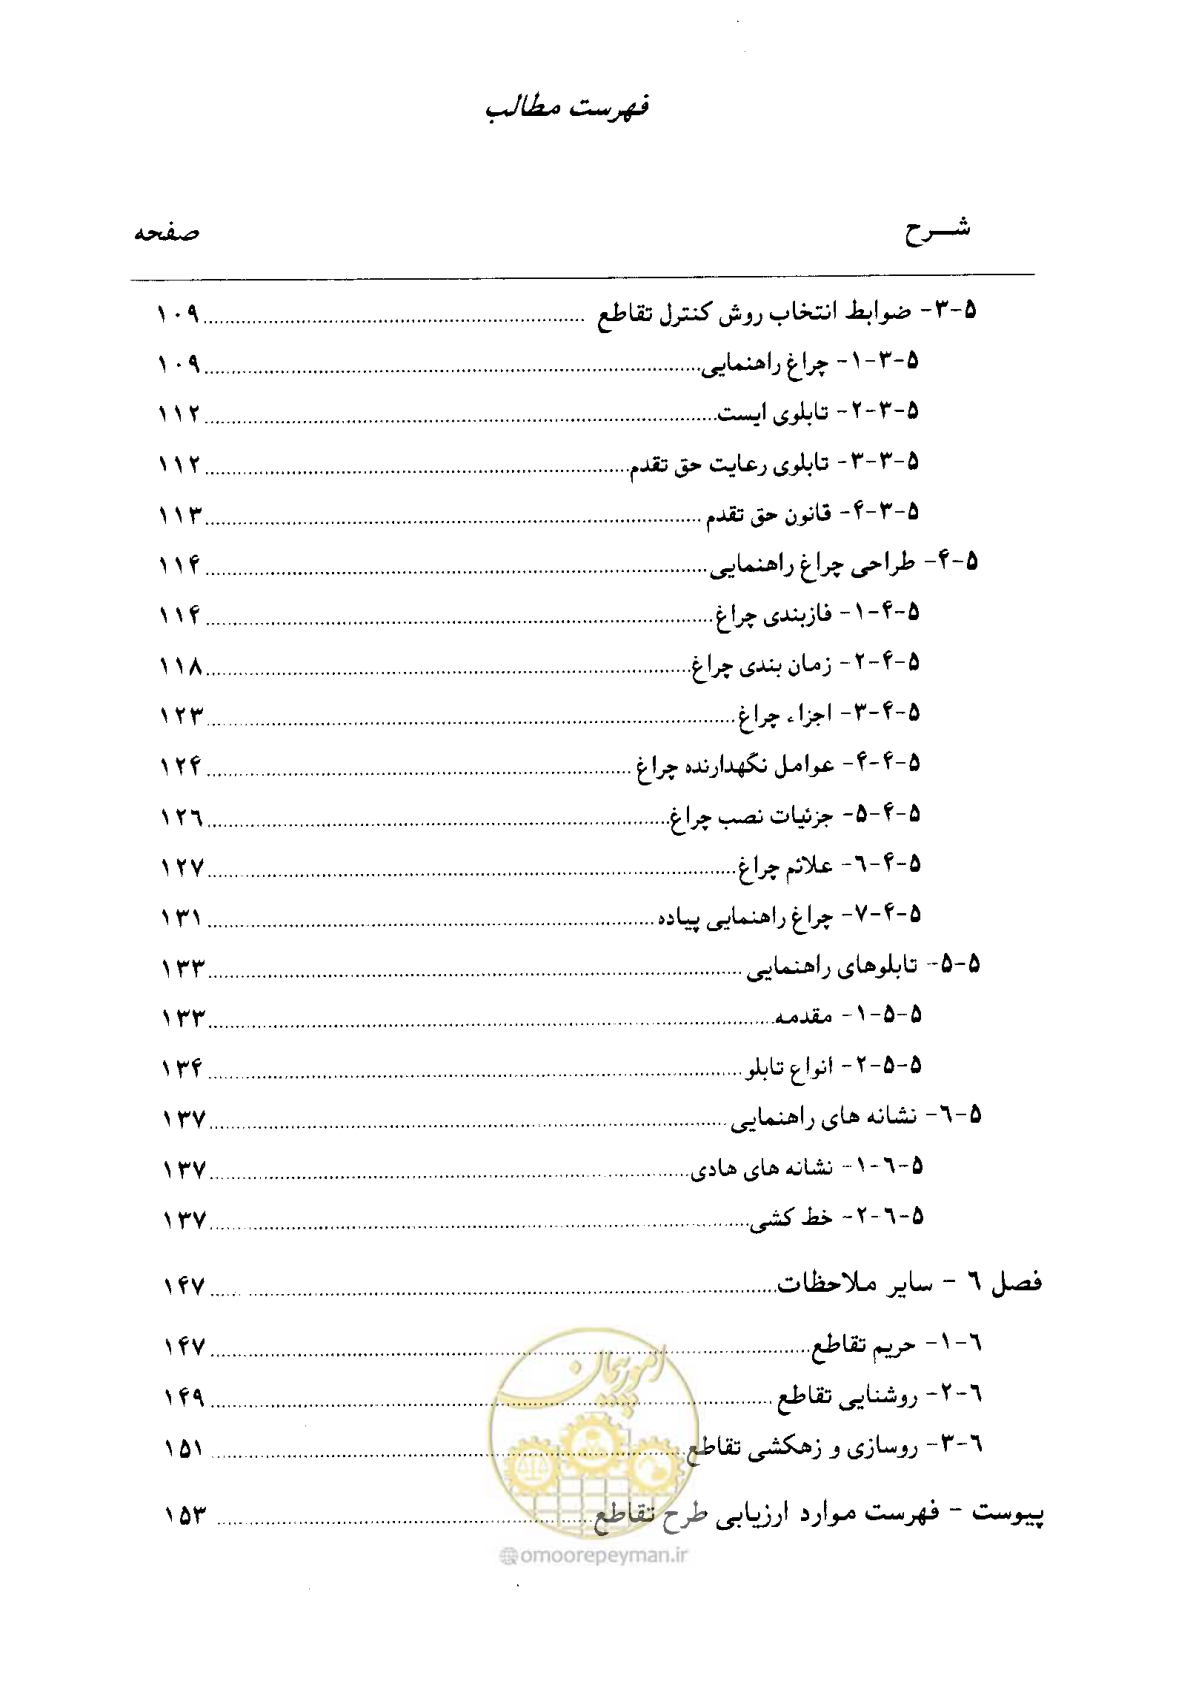 فهرست مطالب
شـــرح صفحه
۵-۳- ضوابط انتخاب روش کنترل تقاطع ........ ۱۰۹
۵-۳-۱- چراغ راهنمایی ........ ۱۰۹
۵-۳-۲- تابلوی ایست ........ ۱۱۲
۵-۳-۳- تابلوی رعایت حق تقدم ........ ۱۱۲
۵-۳-۴- قانون حق تقدم ........ ۱۱۳
۵-۴- طراحی چراغ راهنمایی ........ ۱۱۴
۵-۴-۱- فازبندی چراغ ........ ۱۱۴
۵-۴-۲- زمان بندی چراغ ........ ۱۱۸
۵-۴-۳- اجزاء چراغ ........ ۱۲۳
۵-۴-۴- عوامل نگهدارنده چراغ ........ ۱۲۴
۵-۴-۵- جزئیات نصب چراغ ........ ۱۲۶
۵-۴-۶- علائم چراغ ........ ۱۲۷
۵-۴-۷- چراغ راهنمایی پیاده ........ ۱۳۱
۵-۵- تابلوهای راهنمایی ........ ۱۳۳
۵-۵-۱- مقدمه ........ ۱۳۳
۵-۵-۲- انواع تابلو ........ ۱۳۴
۵-۶- نشانه های راهنمایی ........ ۱۳۷
۵-۶-۱- نشانه های هادی ........ ۱۳۷
۵-۶-۲- خط کشی ........ ۱۳۷
فصل ۶ - سایر ملاحظات ........ ۱۴۷
۶-۱- حریم تقاطع ........ ۱۴۷
۶-۲- روشنایی تقاطع ........ ۱۴۹
۶-۳- روسازی و زهکشی تقاطع ........ ۱۵۱
پیوست - فهرست موارد ارزیابی طرح تقاطع ........ ۱۵۳
امور پیمان
@omoorepeyman.ir